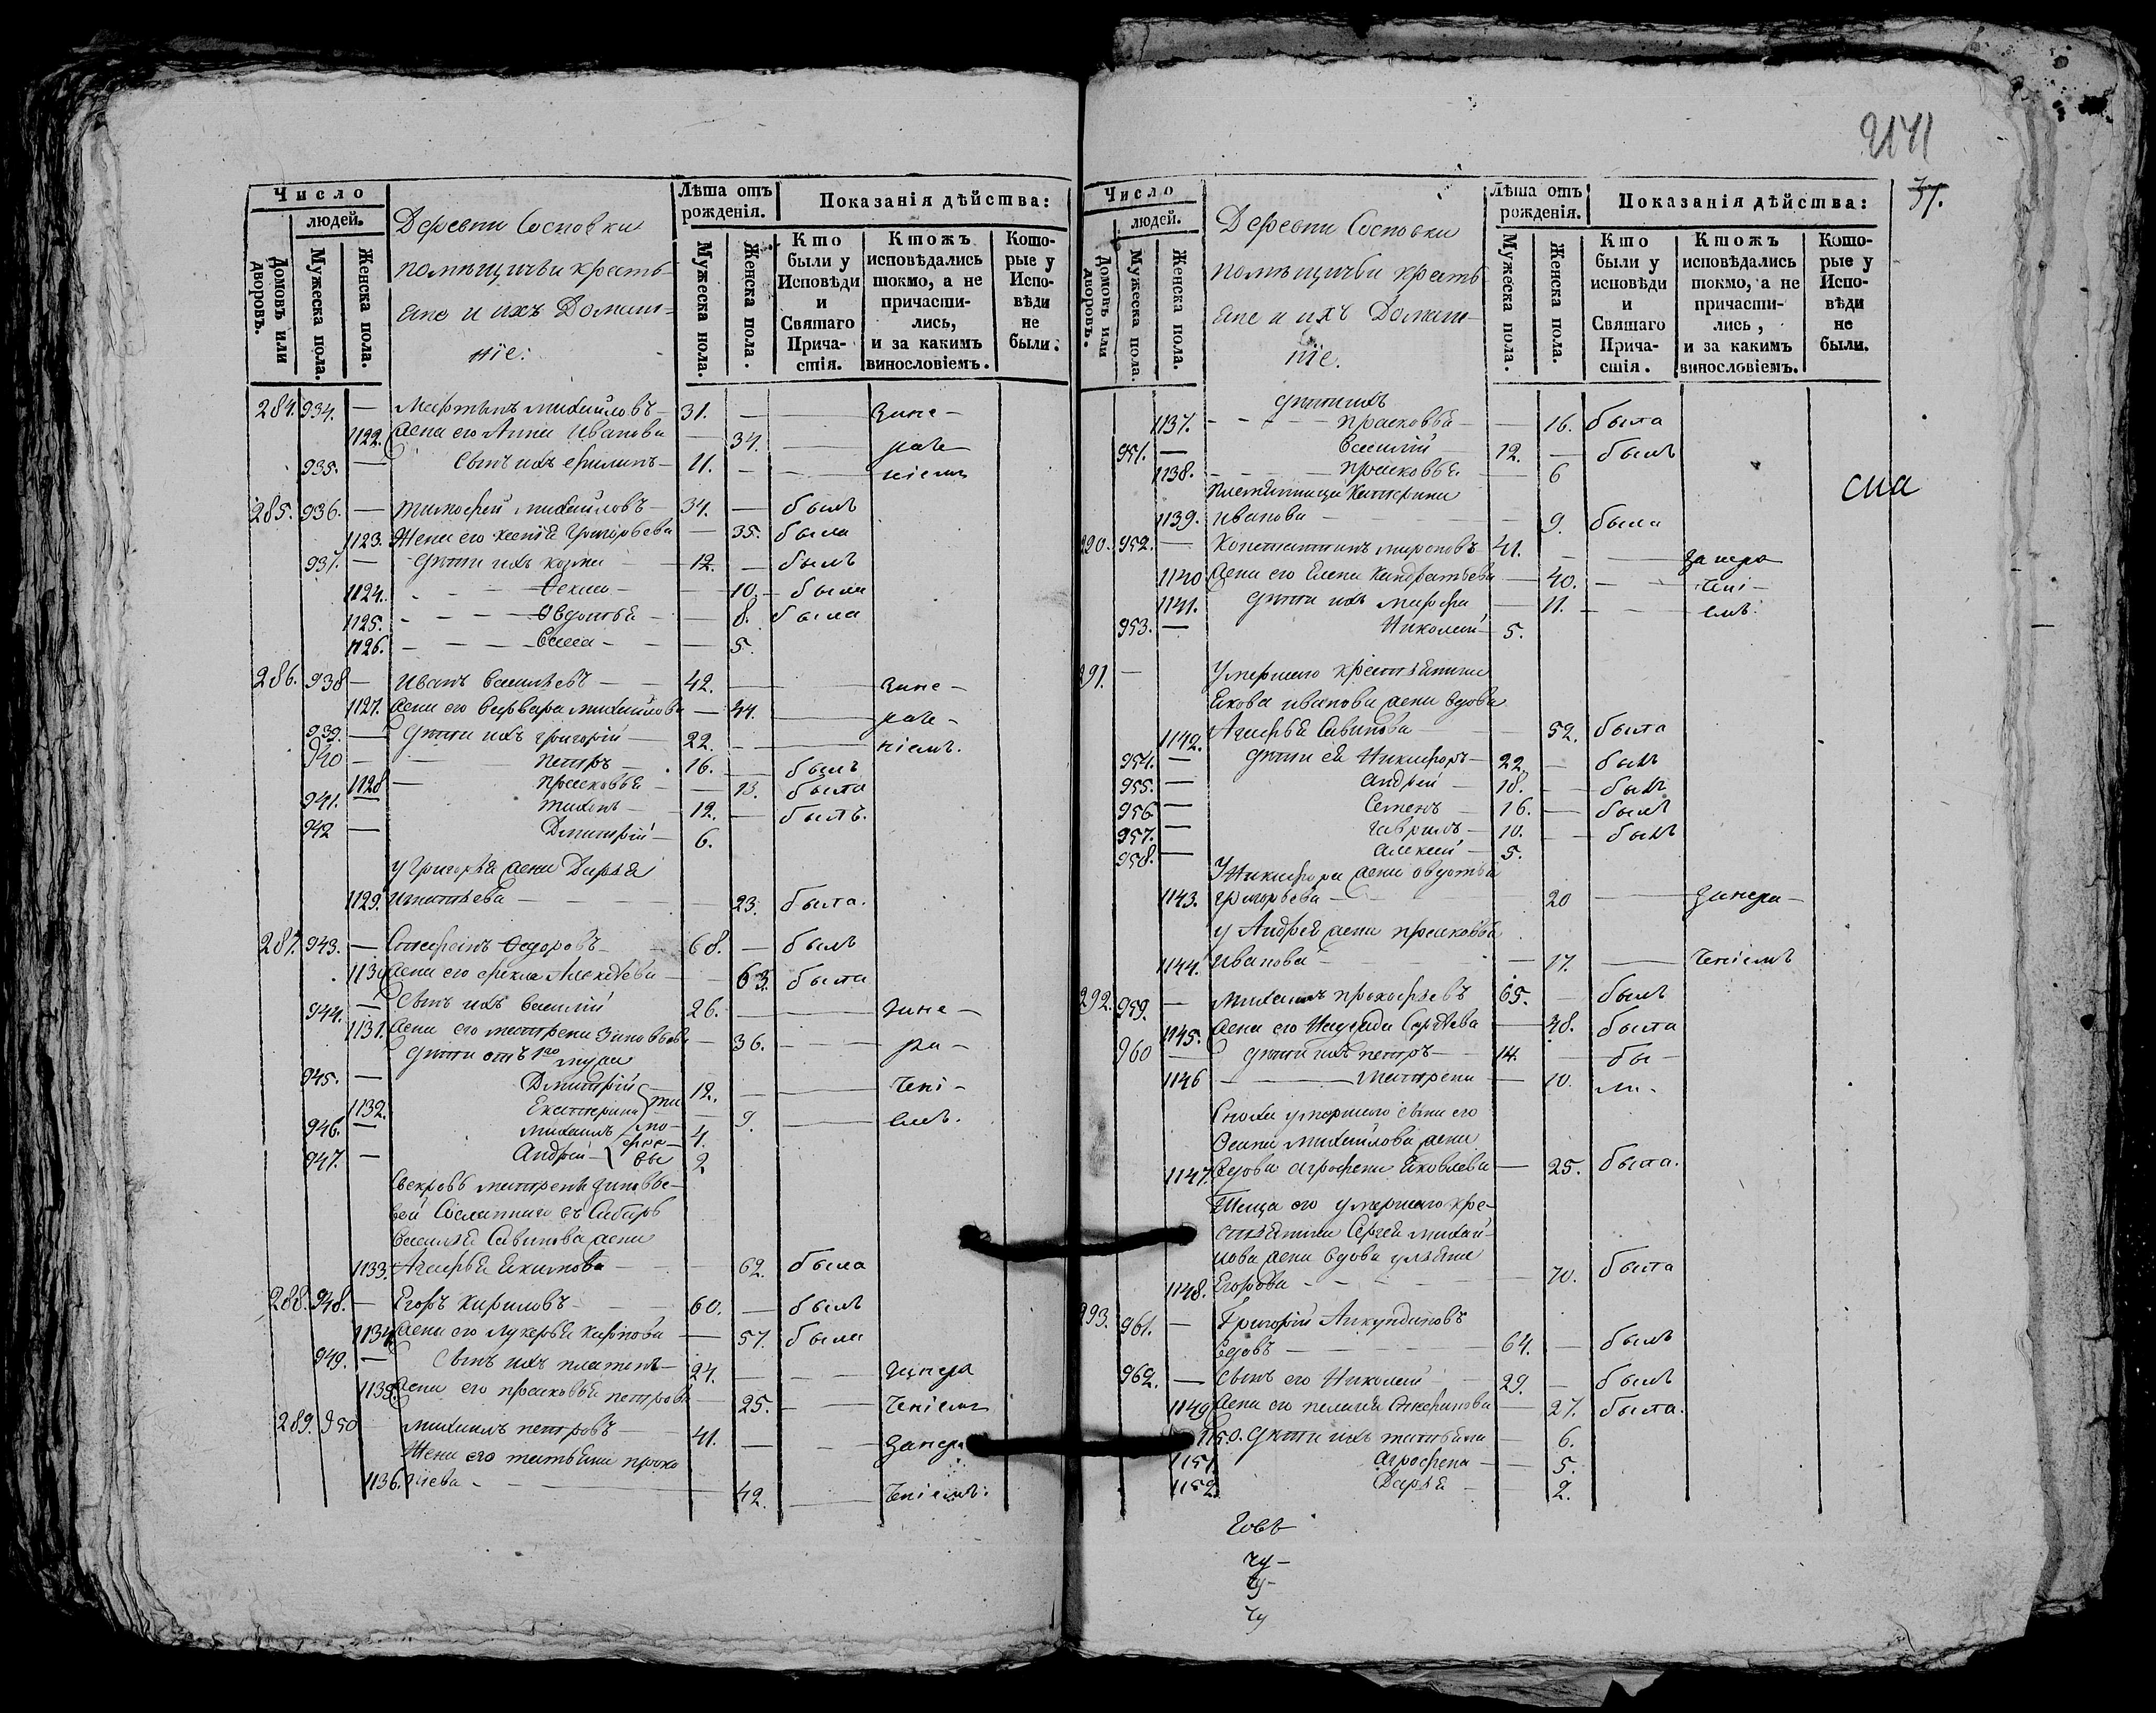 Число
людей.
Домовъ или дворовъ.
Мужеска пола.
Женска пола.
Деревни Сосновки
помѣщичьи кресть-
яне и ихъ Домаш-
нїе:
Лѣта отъ
рожденія.
Мужеска пола.
Женска пола.
Показанія дѣйства:
Кто были у Исповѣди и Святаго Прича-стія.
Ктожъ исповѣдались токмо, а не причасти-лись, и за какимъ винословіемъ.
Кото-рые у Испо-вѣди не были.
284. 934. — Мартынъ Михайловъ — 31. — — зане-
1122. Жена его Анна Иванова — 34. — раче-
935. — Сынъ ихъ Филипъ — 11. — — ніемъ
285. 936. — Тимофей Михайловъ — 34. — былъ
1123. Жена его Ксенія Григорьева — 35. была
937. — Дѣти ихъ Козма — 12. — былъ
1124. Ѳекла — 10. — была
1125. Овдотья — 8. была
1126. Васса — 5.
286. 938 — Иванъ Васильевъ — 42. — зане-
1127. Жена его Варвара Михайлова — 44. — раче-
939. — Дѣти ихъ Григорій — 22. — ніемъ.
940 — Петръ — 16. — былъ
1128 — Прасковья — 13. была
941. — Тихонъ — 12. — былъ.
942 — Дмитрій — 6.
у Григорья жена Дарья
1129. Игнатьева — 23. была.
287. 943. — Ѳедоровъ — 68. — былъ
1130 Жена его Фекла Алексѣева — 63. была
944. — Сынъ ихъ Василій 26. — зане-
1131. Жена его Матрена Зиновьева — 36. — ра-
Дѣти отъ 1го мужа
945. — Дмитрій 12. — чені-
1132. Екатерина — 9. — емъ.
946. — Михаилъ 4.
947. — Андрей 2
Тимофеевы
Свекровь Матрены Зиновье-
вой Сосланнаго въ Сибирь
Василья Савинова жена
1133. Агафья Екимова — 62. была
288. 948. — Егоръ Кириловъ — 60. — былъ
1134 Жена его Лукерья Карпова — 57. была
949. — Сынъ ихъ Платонъ — 24. — — занера
1135 Жена его Прасковья Петрова — 25. — ченіемъ
289. 950 Михаилъ Петровъ — 41. — — занера
Жена его Татьяна Проко
1136. піева — 42. — ченіемъ.
2141
37.
Число
людей.
Домовъ или дворовъ.
Мужеска пола.
Женска пола.
Деревни Сосновки
помѣщичьи кресть
яне и ихъ Домаш-
нїе.
Лѣта отъ
рожденія.
Мужеска пола.
Женска пола.
Показанія дѣйства:
Кто были у исповѣди и Святаго Прича-стія.
Ктожъ исповѣдались токмо, а не причасти-лись, и за какимъ винословіемъ.
Кото-рые у Испо-вѣди не были.
Дѣти ихъ
1137. — Прасковья — 16. была
951. — Василій 12. — былъ
1138. — Прасковья — 6
Племянница Катерина
1139. Иванова — 9. была
сна
290. 952. — Константинъ Мироновъ 41. — — за нера
1140 Жена его Елена Кондратьева — 40. — чені-
1141. Дѣти ихъ Марфа — 11. — емъ.
953. — Николай — 5.
291. — Умершаго крестьянина
Якова Иванова жена вдова
1142. Агафья Савинова — 52. была
954. — Дѣти ея Никифоръ — 22. — былъ
955. — Андрей — 18. — былъ
956 — Семенъ — 16. — былъ
957. — Гаврилъ — 10. — былъ
958. — Алексей — 5.
У Никифора жена Овдотья
1143. Григорьева — 20 — занера-
у Андрея жена Прасковья
1144. Иванова — 17. — ченіемъ
292. 959. — Михаилъ Прокофьевъ 65. — былъ
1145. Жена его Надежда Сергѣева — 48. была
960 — Дѣти ихъ Петръ — 14. — бы-
1146 — Матрена — 10. ли.
Сноха умершаго сына его
Осипа Михайлова жена
1147. Вдова Агрофена Яковлева — 25. была.
Теща его умершаго кре-
стьянина Сергея Михай-
лова жена вдова Ульяна
1148. Егорова — 70. была
293. 961. — Григорій Анкундиновъ
Вдовъ — 64. — былъ
962. — Сынъ его Николай 29. — былъ
1149 Жена его Пелагея — 27. была.
1150. Дѣти ихъ Татьяна — 6.
1151. Агрофена — 5.
1152. Дарья — 2.
чу-
чу-
чу